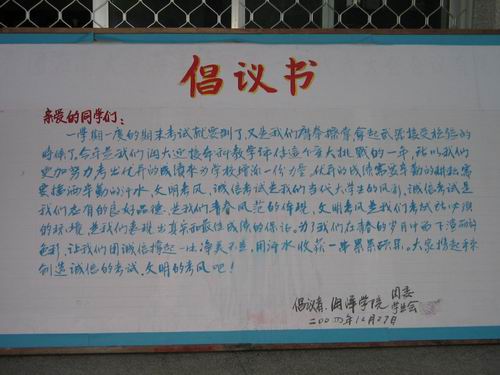 倡议书
亲爱的同学们：
一学期一度的期末考试就要到了，又是我们磨拳擦掌拿起武器接受检验的
时候了。今年是我们湘大迎接本科教学评估这个重大挑战的一年，所以我们
更加努力考出优异的成绩来为学校增添一份力量。优异的成绩需要辛勤的耕耘需
要挥洒辛勤的汗水，文明考风，诚信考试是我们当代大学生的风彩，诚信考试是
我们应有的良好品德，是我们青春风范的体现，文明考风是我们考试必须
的环境，是我们表现出真实和最佳成绩的保证。为了我们在青春的岁月中留下漂丽的
色彩，让我们用诚信撑起一片净美天空，用汗水收获一串累累硕果。大家携起手来
创造诚信的考试，文明的考风吧！
倡议者：湘潭学院 团委
学生会
二00四年12月27日